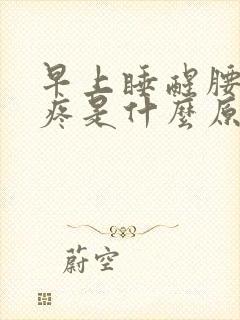 早上睡醒腰
疼是什麼原
蔚空